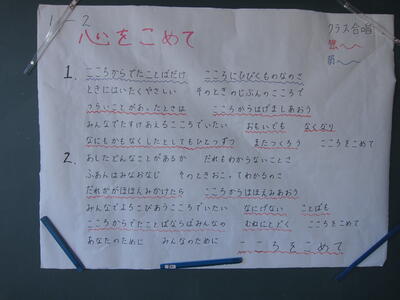 1-2
心をこめて
クラス合唱
1. こころからでたことばだけ こころにひびくものなのさ
ときにはいたくやさしい そのときのじぶんのこころで
つらいことがあったときは こころからはげましあおう
みんなでたすけあえるこころでいたい おもいでも なくなり
なにもかもなくしたとしてもひとつずつ またつくろう こころをこめて
2. あしたどんなことがあるか だれもわからないことさ
ふあんはみなおなじ そのときおこってわかるのさ
だれかがほほえみかけたら こころからほほえみあおう
みんなでよろこびあうこころでいたい なにげない ことばも
こころからでたことばならばみんなの むねにとどく こころをこめて
あなたのために みんなのために こころをこめて